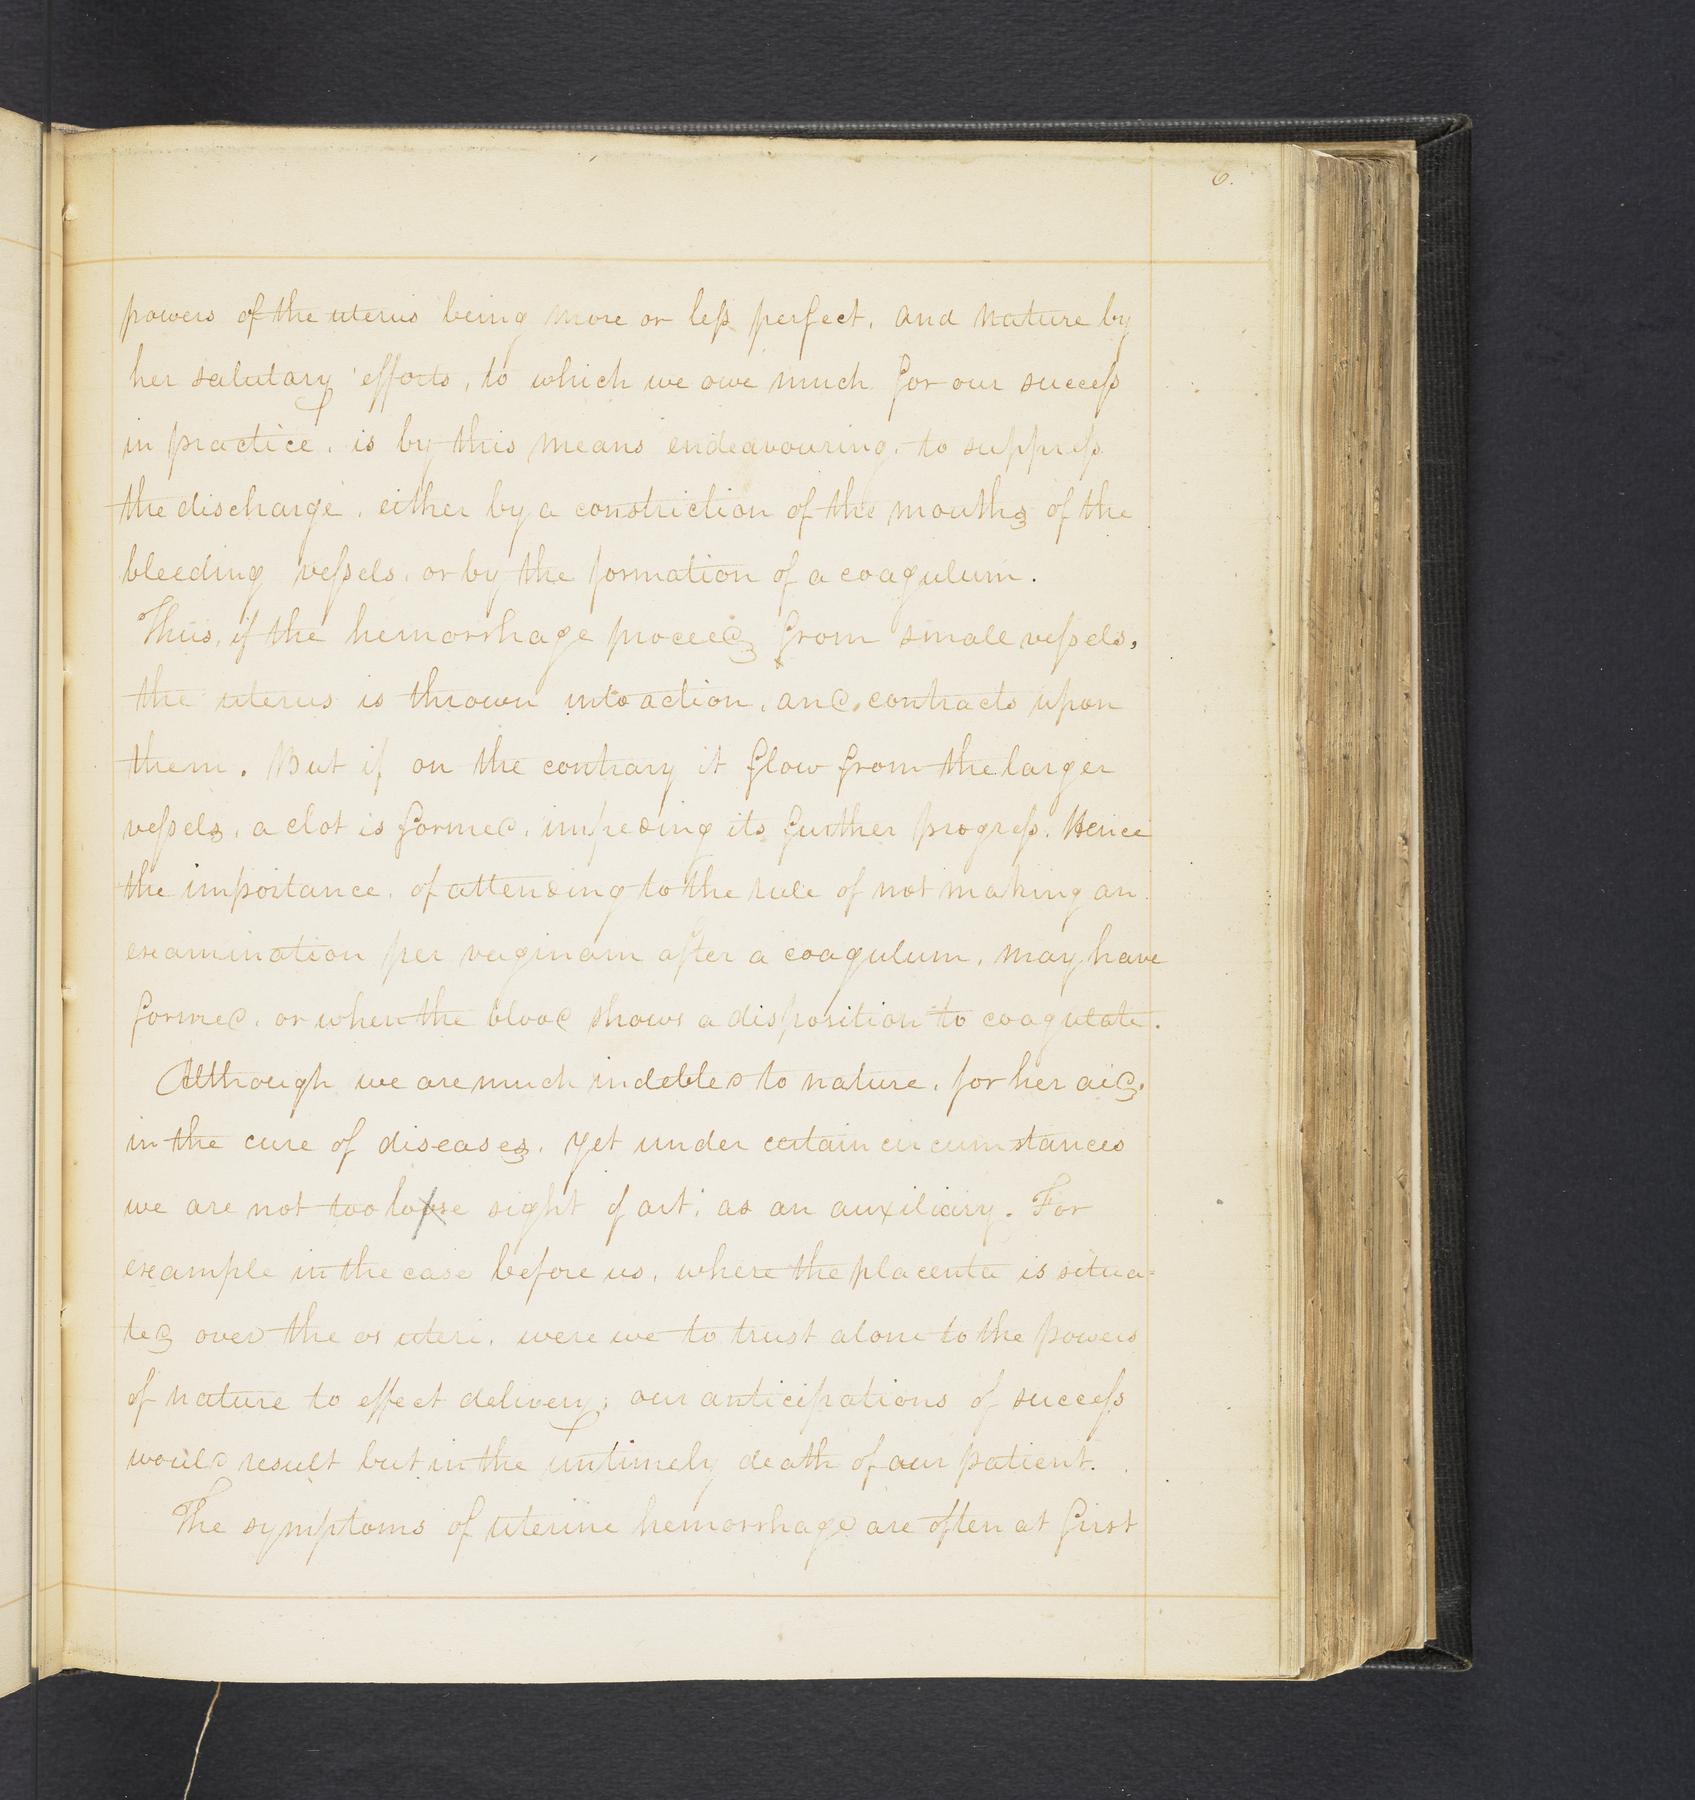 6.
powers of the uterus being more or less perfect, and nature by
her salutary efforts, to which we owe much for our success
in practice, is by this means endeavouring, to suppress
the discharge, either by a constriction of the mouths of the
bleeding vessels, or by the formation of a coagulum.
Thus, if the hemorrhage proceed from small vessels,
the uterus is thrown into action, and contracts upon
them. But if on the contrary it flow from the larger
vessels, a clot is formed, impeding its further progress. Hence
the importance, of attending to the rule of not making an
examination per vaginam after a coagulum, may have
formed, or when the blood shows a disposition to coagulate.
Although we are much indebted to nature, for her aid,
in the cure of diseases, yet under certain circumstances
we are not too loose sight of art, as an auxiliary. For
example in the case before us, where the placenta is situa-
ted over the os uteri, were we to trust alone to the powers
of nature to effect delivery; our anticipations of success
would result but in the untimely death of our patient.
The symptoms of uterine hemorrhage are often at first